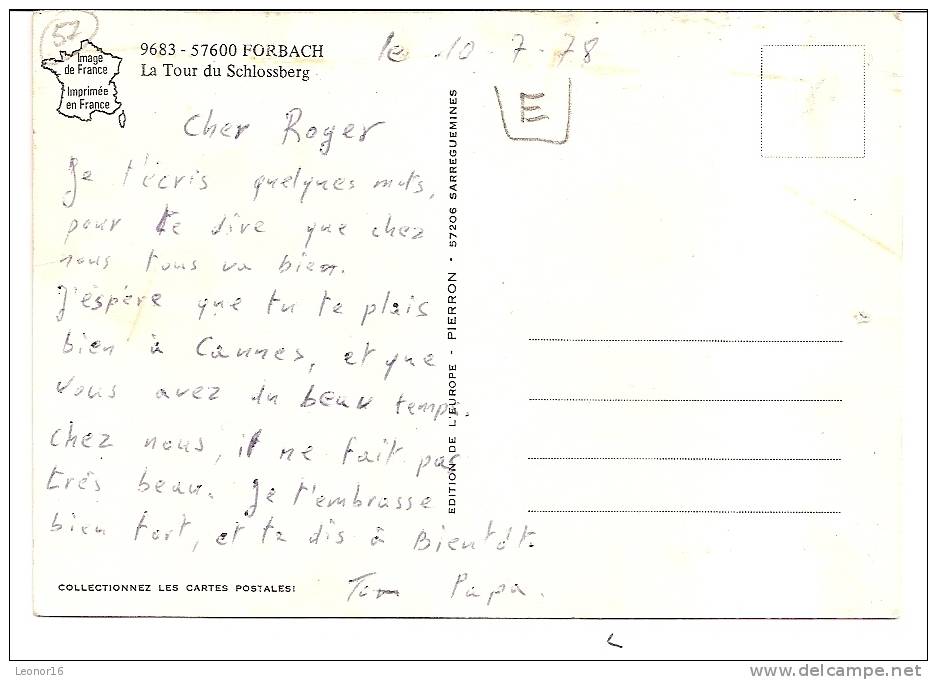 57
Image
de France
Imprimée
en France
9683 - 57600 FORBACH
La Tour du Schlossberg
le 10-7-78
E
Cher Roger
Je t'écris quelques mots,
pour te dire que chez
nous tous va bien.
J'espère que tu te plais
bien à Cannes, et que
vous avez du beau temps.
Chez nous, il ne fait pas
très beau. Je t'embrasse
bien fort, et te dis à Bientôt.
Ton Papa.
COLLECTIONNEZ LES CARTES POSTALES!
EDITION DE L'EUROPE - PIERRON - 57206 SARREGUEMINES
Leonor16
www.delcampe.net